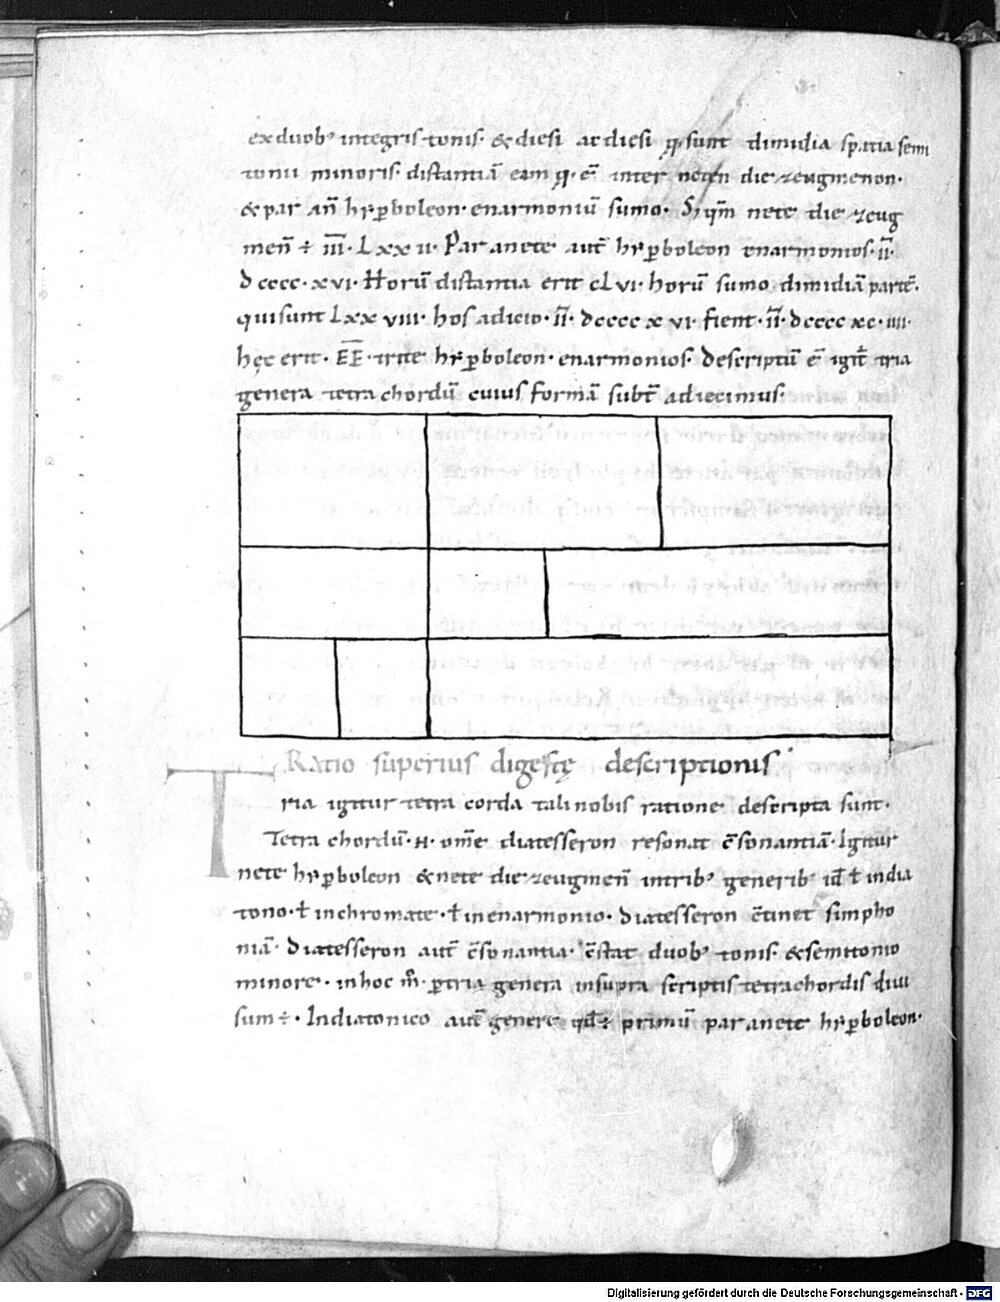 ex duob⁹ integris tonis· & diesi ac diesi q̨· sunt dimidia spatia semi
tonii minoris· distantiā eam q̨· ē inter neten diezeugmenon·
& par añ hypboleon· enarmoniū sumo· Si qm̄ nete diezeug
meñ ÷ ĪĪĪ· Lxx ii· Par anete aut̄ hypboleon enarmonios· īī·
dcccc·xvi· Horū distantia erit cLvi· horū sumo dimidiā partē·
qui sunt Lxx viii· hos adicio· īī· dcccc x vi fient· īī· dcccc xc·iiii·
hęc erit· E̅E̅· trite hypboleon· enarmonios· descriptū ē igit̄ tria
genera tetra chordū cuius formā subt̄ adiecimus·
Ratio superius digestę descriptionis·
Tria igitur tetra corda tali nobis ratione descripta sunt·
Tetra chordū· H· om̄e diatesseron resonat c̄sonantiā· Igitur
nete hypboleon & nete diezeugmeñ in trib⁹ generib⁹ id̄ ł in dia
tono· ł in chromate· ł in enarmonio· diatesseron c̄tinet simpho
niā· Diatesseron aut̄ c̄sonantia· c̄stat duob⁹ tonis· & semitonio
minore· in hoc m̊· p tria genera in supra scriptis tetrachordis diui
sum ÷· In diatonico aut̄ genere qd̄ ÷ primū par anete hypboleon·
Digitalisierung gefördert durch die Deutsche Forschungsgemeinschaft - DFG